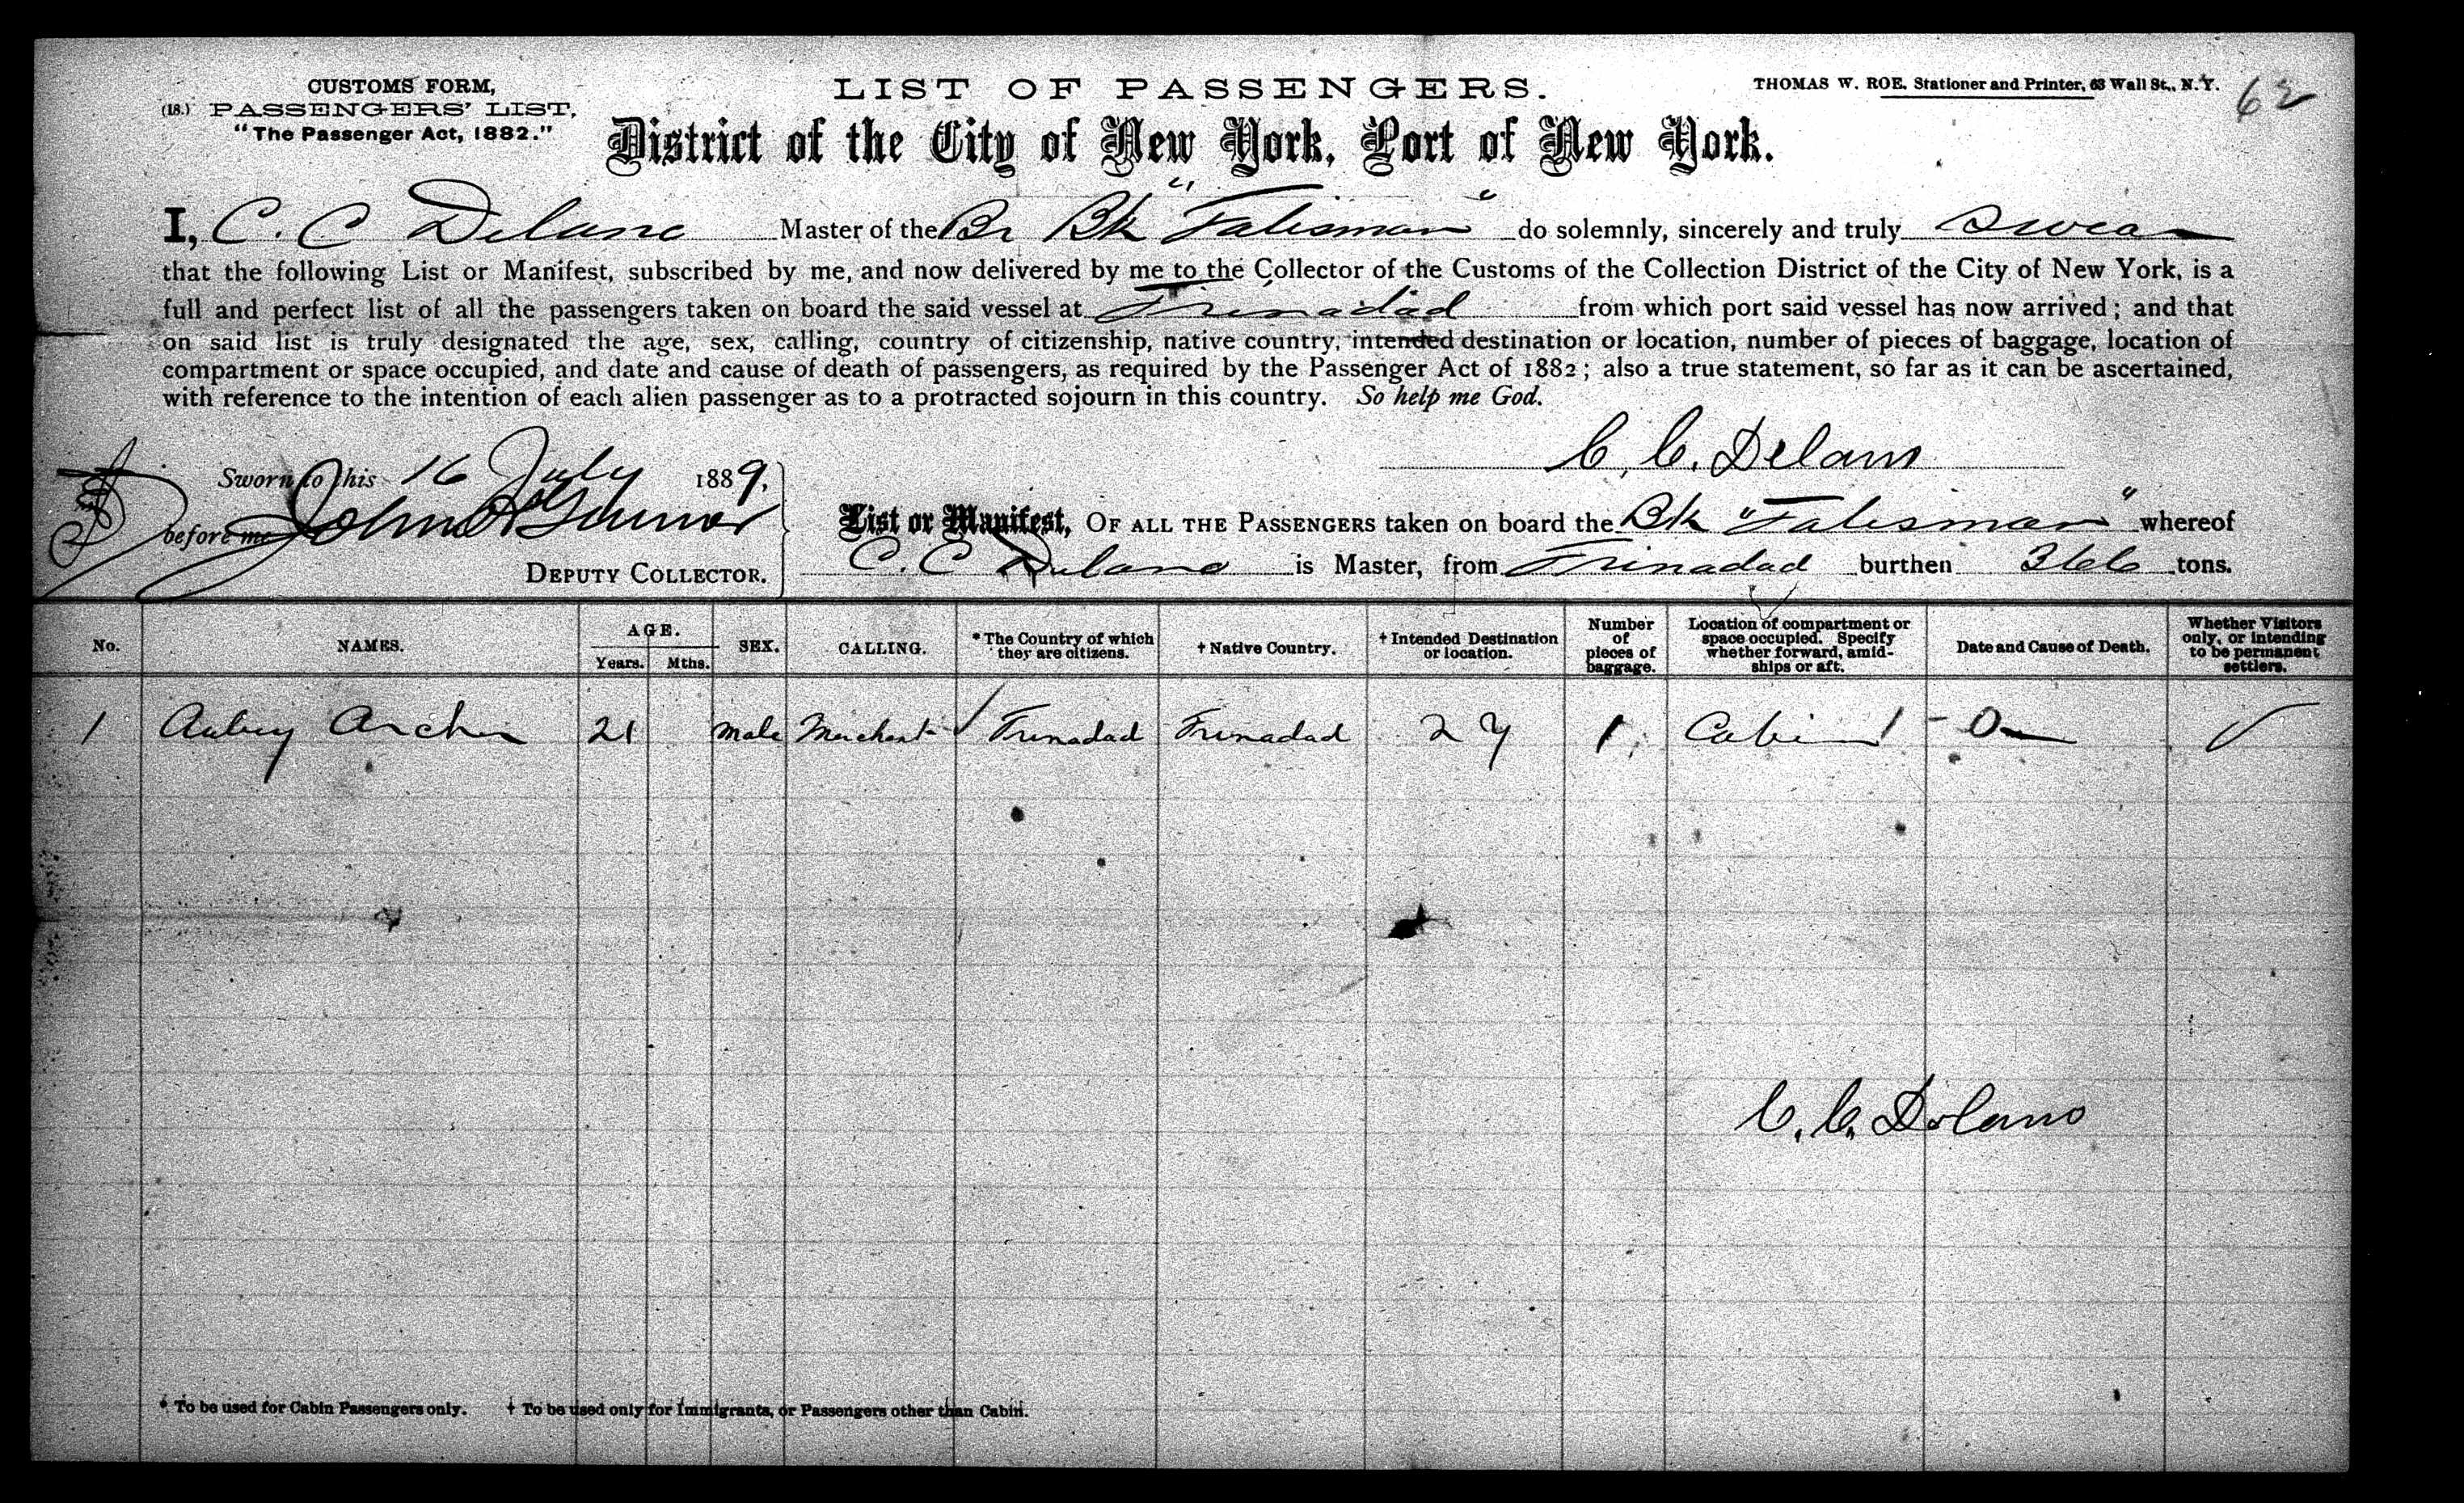 CUSTOMS FORM,
(18.) PASSENGERS' LIST,
"The Passenger Act, 1882."
LIST OF PASSENGERS.
THOMAS W. ROE, Stationer and Printer, 63 Wall St., N.Y.
62
District of the City of New York, Port of New York.
I, C. C Delano Master of the Br Bk "Talisman" do solemnly, sincerely and truly swear
that the following List or Manifest, subscribed by me, and now delivered by me to the Collector of the Customs of the Collection District of the City of New York, is a
full and perfect list of all the passengers taken on board the said vessel at Trinadad from which port said vessel has now arrived; and that
on said list is truly designated the age, sex, calling, country of citizenship, native country, intended destination or location, number of pieces of baggage, location of
compartment or space occupied, and date and cause of death of passengers, as required by the Passenger Act of 1882; also a true statement, so far as it can be ascertained,
with reference to the intention of each alien passenger as to a protracted sojourn in this country. So help me God.
C. C. Delano
Sworn to this 16 July 1889,
before me John
DEPUTY COLLECTOR.
List or Manifest, OF ALL THE PASSENGERS taken on board the Bk "Talisman" whereof
C. C Delano is Master, from Trinadad burthen 366 tons.
No. NAMES. AGE. Years. Mths. SEX. CALLING. * The Country of which they are citizens. † Native Country. † Intended Destination or location. Number of pieces of baggage. Location of compartment or space occupied. Specify whether forward, amidships or aft. Date and Cause of Death. Whether Visitors only, or intending to be permanent settlers.
1 Aubry Archer 21 male Merchant Trinadad Trinadad 2 Y 1 Cabin - 0 -
C. C. Delano
* To be used for Cabin Passengers only. † To be used only for Immigrants, or Passengers other than Cabin.